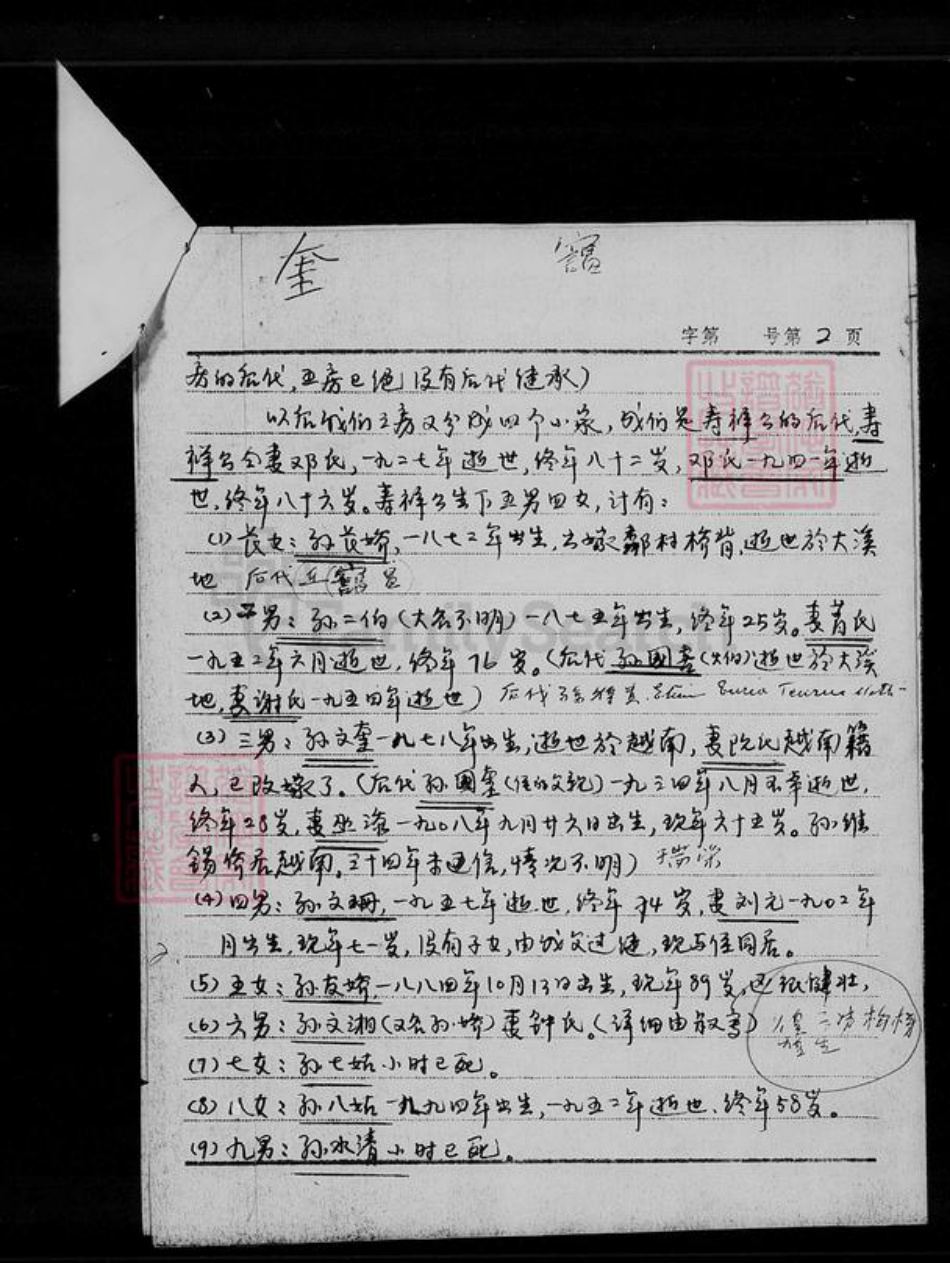 奎 富
字第 号第 2 页
房的后代,五房已绝没有后代继承)
以后我们二房又分成四个小家,我们是寿祥公的后代,寿
祥公合妻邓氏,一九二七年逝世,终年八十二岁,邓氏一九四一年逝
世,终年八十六岁。寿祥公生下五男四女,计有:
(1)长女:孙良娇,一八七二年出生,出嫁鄱村桥背,逝世於大溪
地 后代丘
(2)二男:孙二伯(大名不明)一八七五年出生,终年25岁。妻肖氏
一九五二年六月逝世,终年76岁。(后代孙國喜(火伯)逝世於大溪
地,妻谢氏一九五四年逝世) 后代孙
(3)三男:孙文奎一九七八年出生,逝世於越南,妻阮氏越南籍
人,已改嫁了。(后代孙國奎(侄的父親)一九三四年八月不幸逝世,
终年28岁,妻巫添一九0八年九月廿六日出生,现年六十五岁。孙维
錫侨居越南,三十四年未通信,情况不明)
(4)四男:孙文珊,一九五七年逝世,终年74岁,妻刘元一九0二年
月出生,现年七一岁,没有子女,由我父过继,现与侄同居。
(5)五女:孙友娇一八八四年10月13日出生,现年89岁,还很健壮,
(6)六男:孙文湘(又名孙娇)妻钟氏。(详细由叔写)
(7)七女:孙七姑小时已死。
(8)八女:孙八姑一九九四年出生,一九五二年逝世、终年58岁。
(9)九男:孙水清小时已死。
FamilySearch